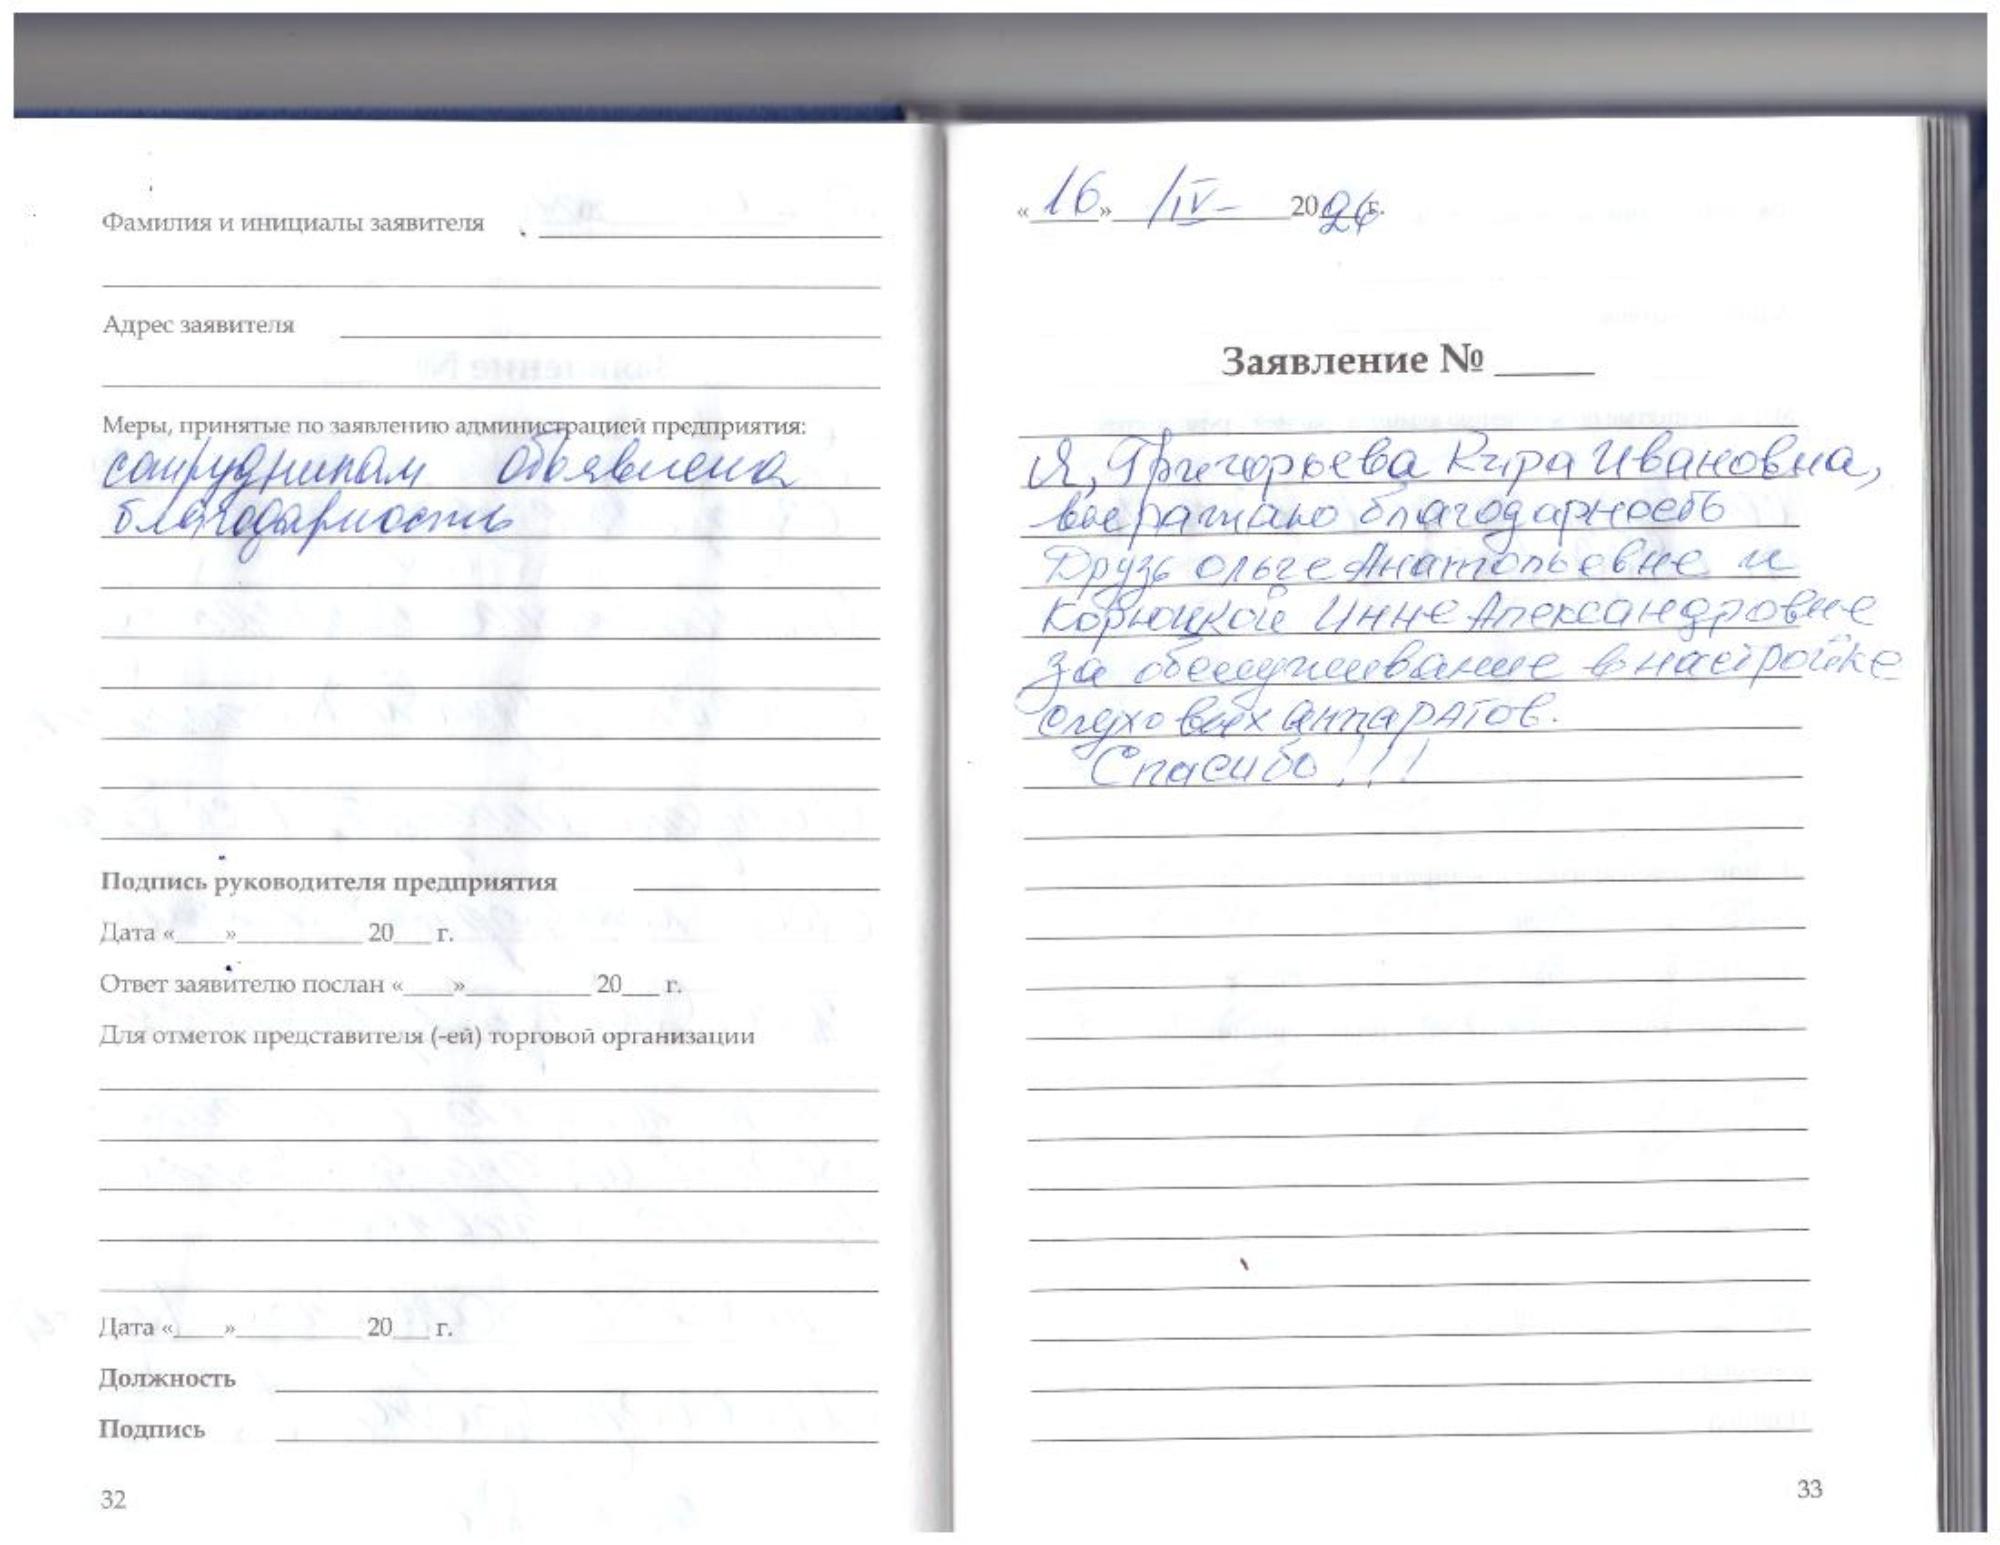 Фамилия и инициалы заявителя
Адрес заявителя
Меры, принятые по заявлению администрацией предприятия:
сотрудникам объявлена
благодарность
Подпись руководителя предприятия
Дата «____»__________ 20___ г.
Ответ заявителю послан «____»__________ 20___ г.
Для отметок представителя (-ей) торговой организации
Дата «____»__________ 20___ г.
Должность
Подпись
32
«16» IV 20 г.
Заявление № _____
Я, Григорьева Кира Ивановна,
выражаю благодарность
Друзь Ольге Анатольевне и
Корюцкой Инне Александровне
за обслуживание в настройке
слуховых аппаратов.
Спасибо!!!
33